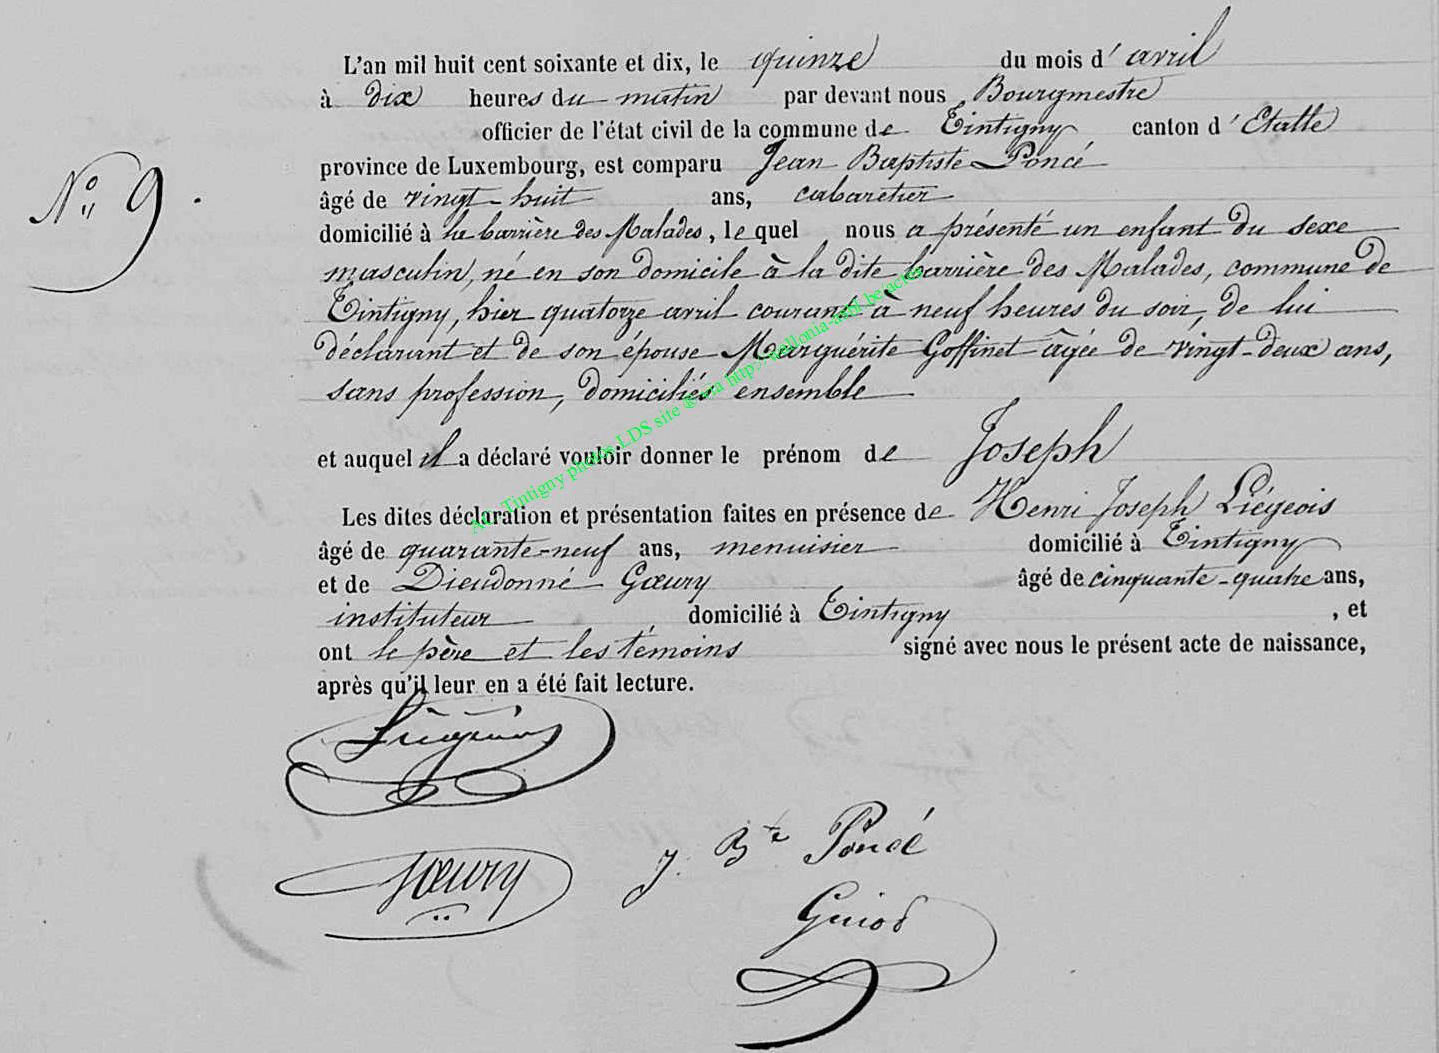 L'an mil huit cent soixante et dix, le quinze du mois d' avril
à dix heures du matin par devant nous Bourgmestre
officier de l'état civil de la commune de Tintigny canton d' Etalle
province de Luxembourg, est comparu Jean Baptiste Poncé
N° 9.
âgé de vingt-huit ans, cabaretier
domicilié à la barrière des Malades, le quel nous a présenté un enfant du sexe
masculin, né en son domicile à la dite barrière des Malades, commune de
Tintigny, hier quatorze avril courant à neuf heures du soir, de lui
déclarant et de son épouse Marguérite Goffinet âgée de vingt-deux ans,
sans profession, domiciliés ensemble
et auquel il a déclaré vouloir donner le prénom de Joseph
Les dites déclaration et présentation faites en présence de Henri Joseph Liégeois
âgé de quarante-neuf ans, menuisier domicilié à Tintigny
et de Dieudonné Gœury âgé de cinquante-quatre ans,
instituteur domicilié à Tintigny, et
ont le père et les témoins signé avec nous le présent acte de naissance,
après qu'il leur en a été fait lecture.
Liégeois
Gœury
J. Bte Poncé
Guiot
AC. Tintigny photos LDS site ® via http://wallonia-asbl.be/actes